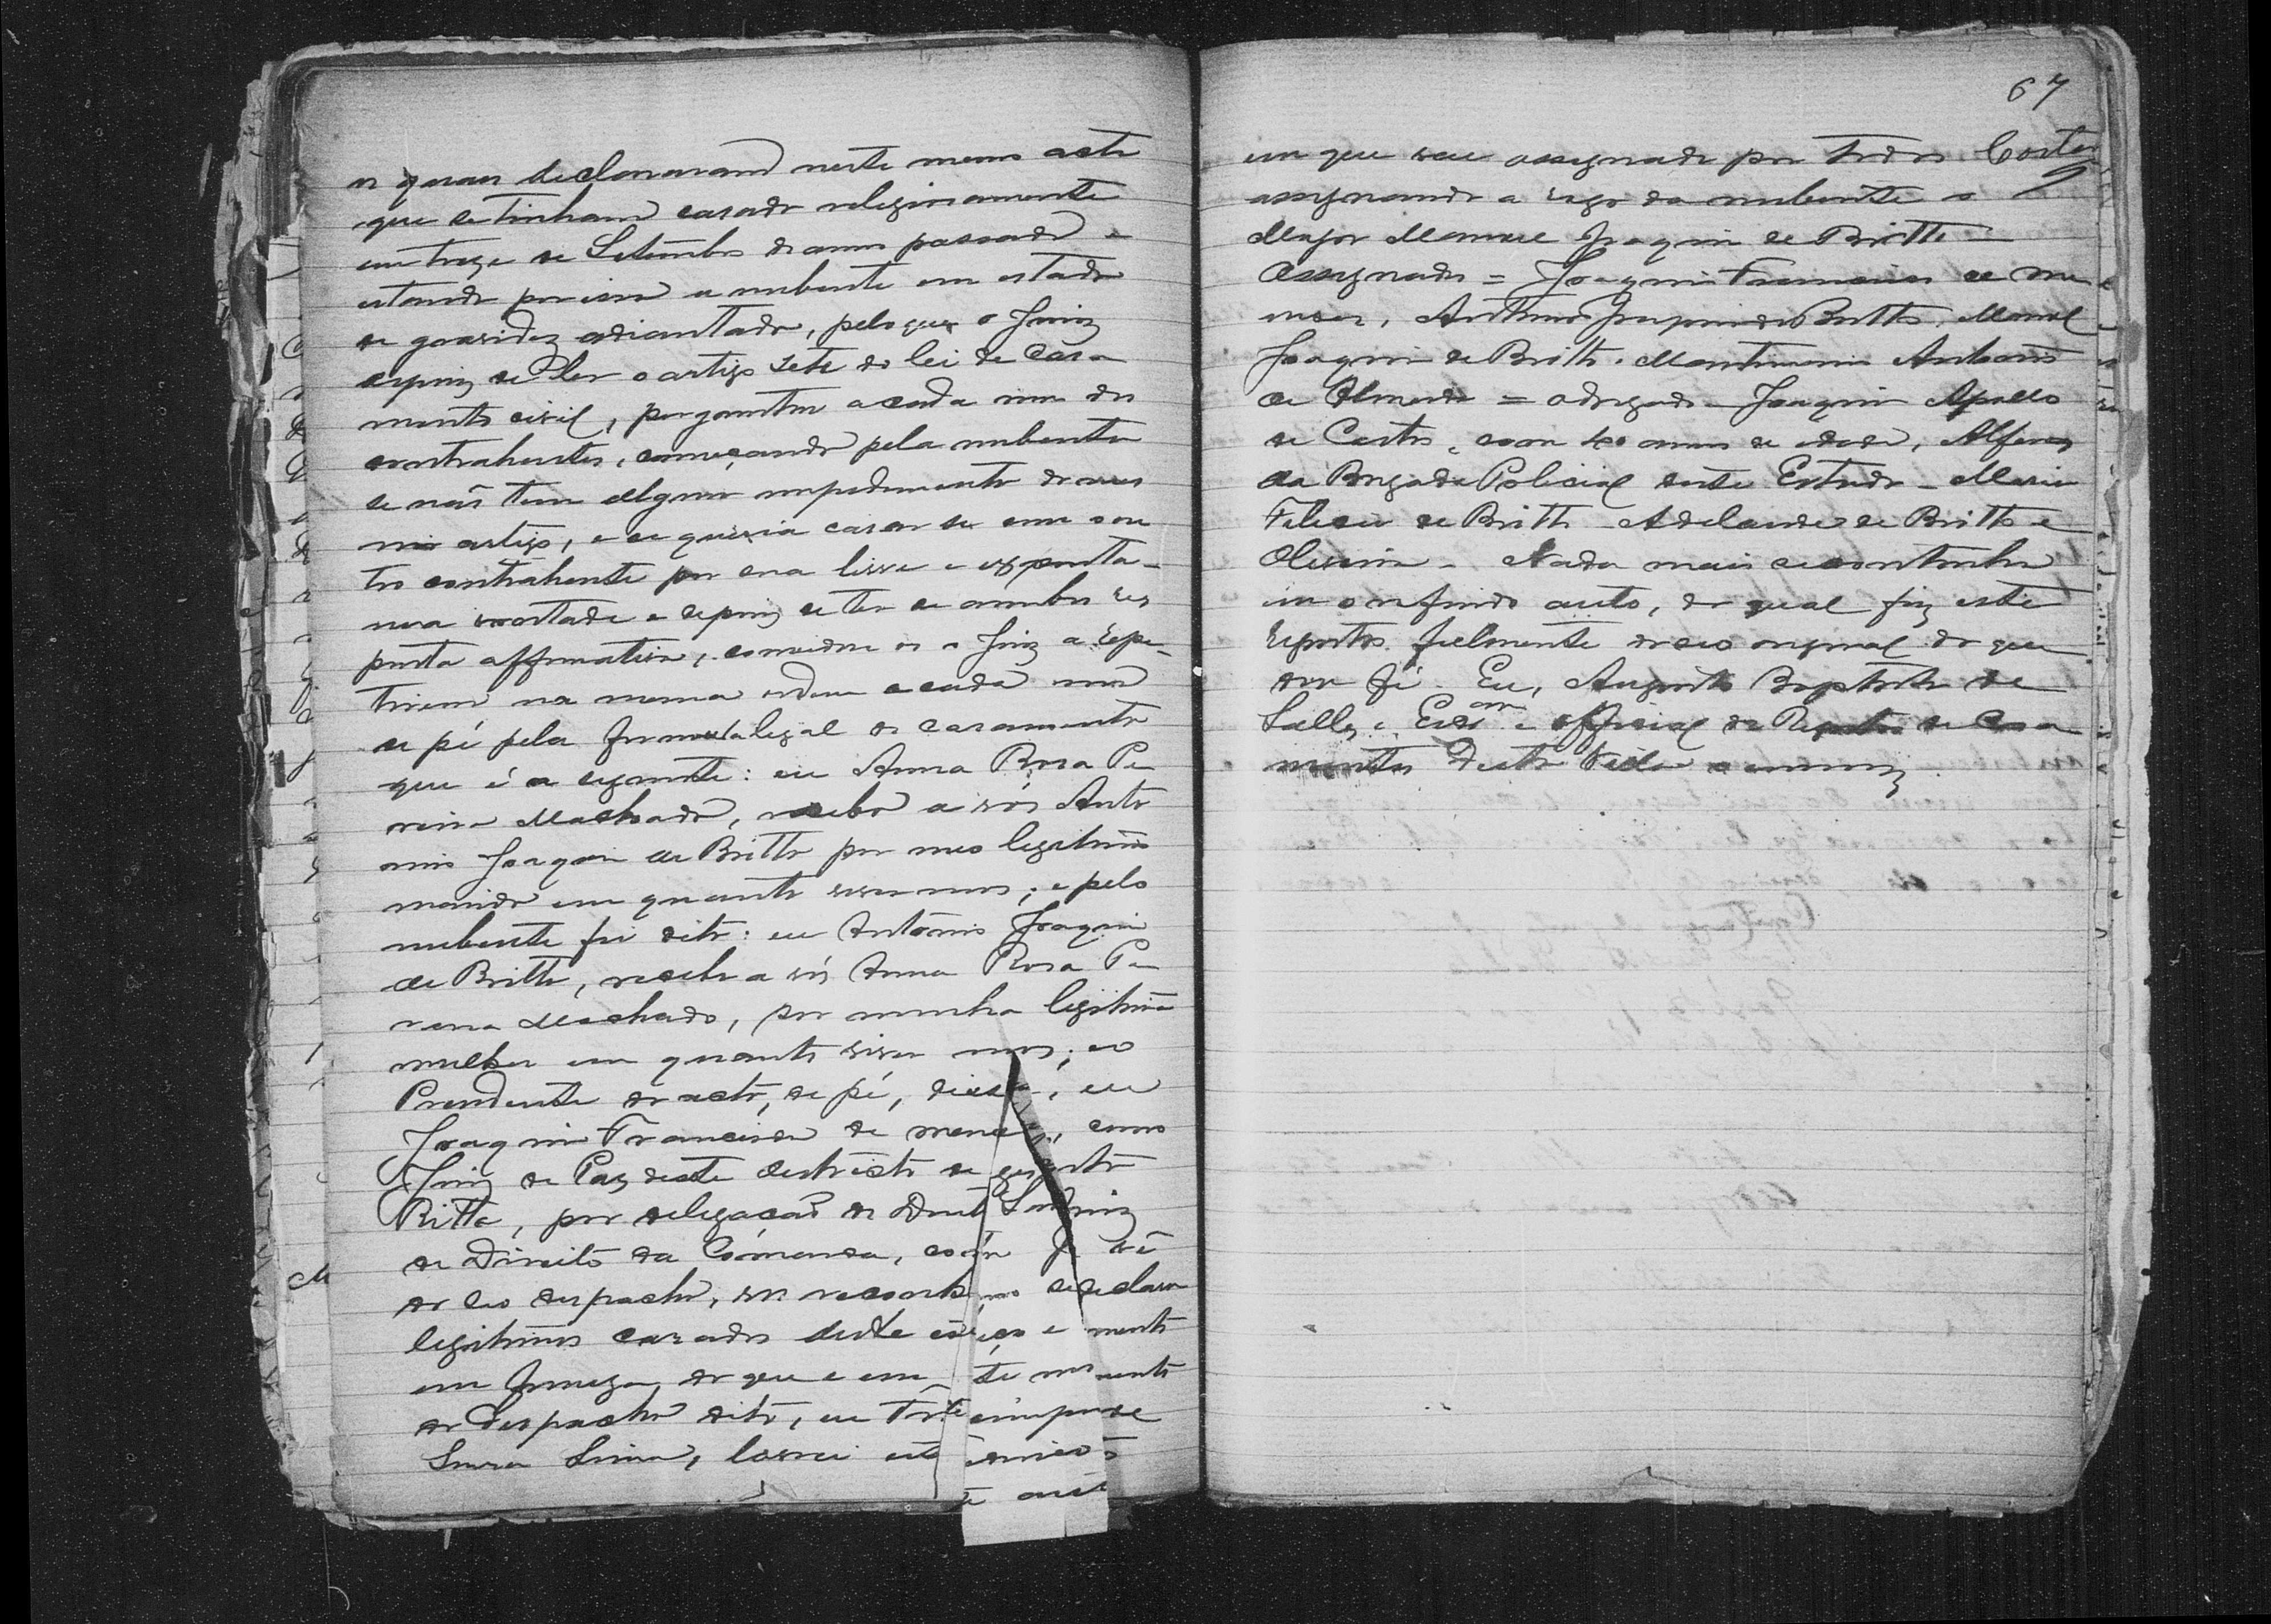 os quaes declararam neste mesmo acto
que se tinham casado religiosamente
em treze de Setembro do anno passado e
estando por isso a nubente em estado
de gravidez adiantado, pelo que o Juiz
depois de ler o artigo sete da lei de Casa
mento civil, perguntou a cada um dos
contrahentes, começando pela nubente
se não tem algum impedimento do mes
mo artigo, e se queria casar se com o ou
tro contrahente por sua livre e exponta-
nea vontade e depois de ter de ambos res
posta affirmativa, convidou os o Juiz a repe-
tirem na mesma ordem e cada um
de pé pela formula legal do casamento
que é a seguinte: eu Anna Rosa Pe
reira Machado, recebo a vós Anto
nio Joaquim de Britto por meo legitimo
marido em quanto vivermos; e pelo
nubente foi dito: eu Antonio Joaquim
de Britto, recebo a vós Anna Rosa Pe
reira Machado, por minha legitima
mulher em quanto viver mos; e o
Presidente do acto, de pé, disse, eu
Joaquim Francisco de Menezes, como
Juiz de Paz deste districto de
Ritta, por delegação do Juiz
de Direito da Comarca, como se vê
do seo despacho, vos reconheço e declaro
legitimos casados desde
em do que e em
do despacho dito, eu
Lima, lavrei este
em que vae assignado por todos Costa
assignando a rogo da nubente o
Major Manoel Joaquim de Britto -
Assignados = Joaquim Francisco de Me
nezes, Antonio Joaquim de Britto, Manoel
Joaquim de Britto. Antonio
de Almeida = advogado - Joaquim Apollo
de Castro, com 40 annos de idade, Alferes
da Brigada Policial deste Estado - Maria
de Britto - Adelaide de Britto e
Oliveira - Nada mais se continha
em o referido auto, do qual fiz este
registro fielmente do seo original do que
dou fé. Eu, Augusto Baptista de
Salles, Escam e official do Registro de Casa
mentos desta Villa o
67